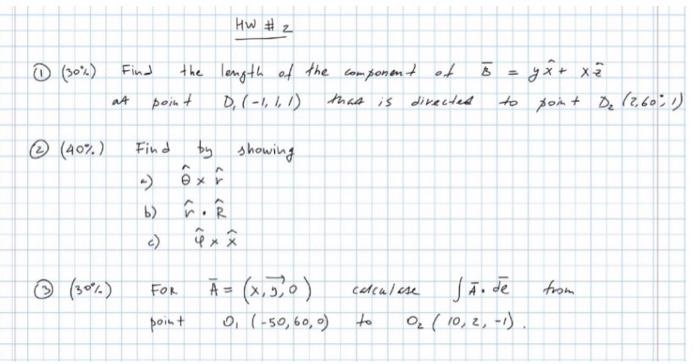 HW # 2
① (30%) Find the length of the component of B̄ = y x̂ + x ẑ
at point D₁ (-1, 1, 1) that is directed to point D₂ (2, 60°, 1)
② (40%) Find by showing
a) θ̂ × r̂
b) r̂ · R̂
c) φ̂ × x̂
③ (30%) FOR Ā = (x, y, 0) calculate ∫ Ā · dℓ̄ from
point O₁ (-50, 60, 0) to O₂ (10, 2, -1).